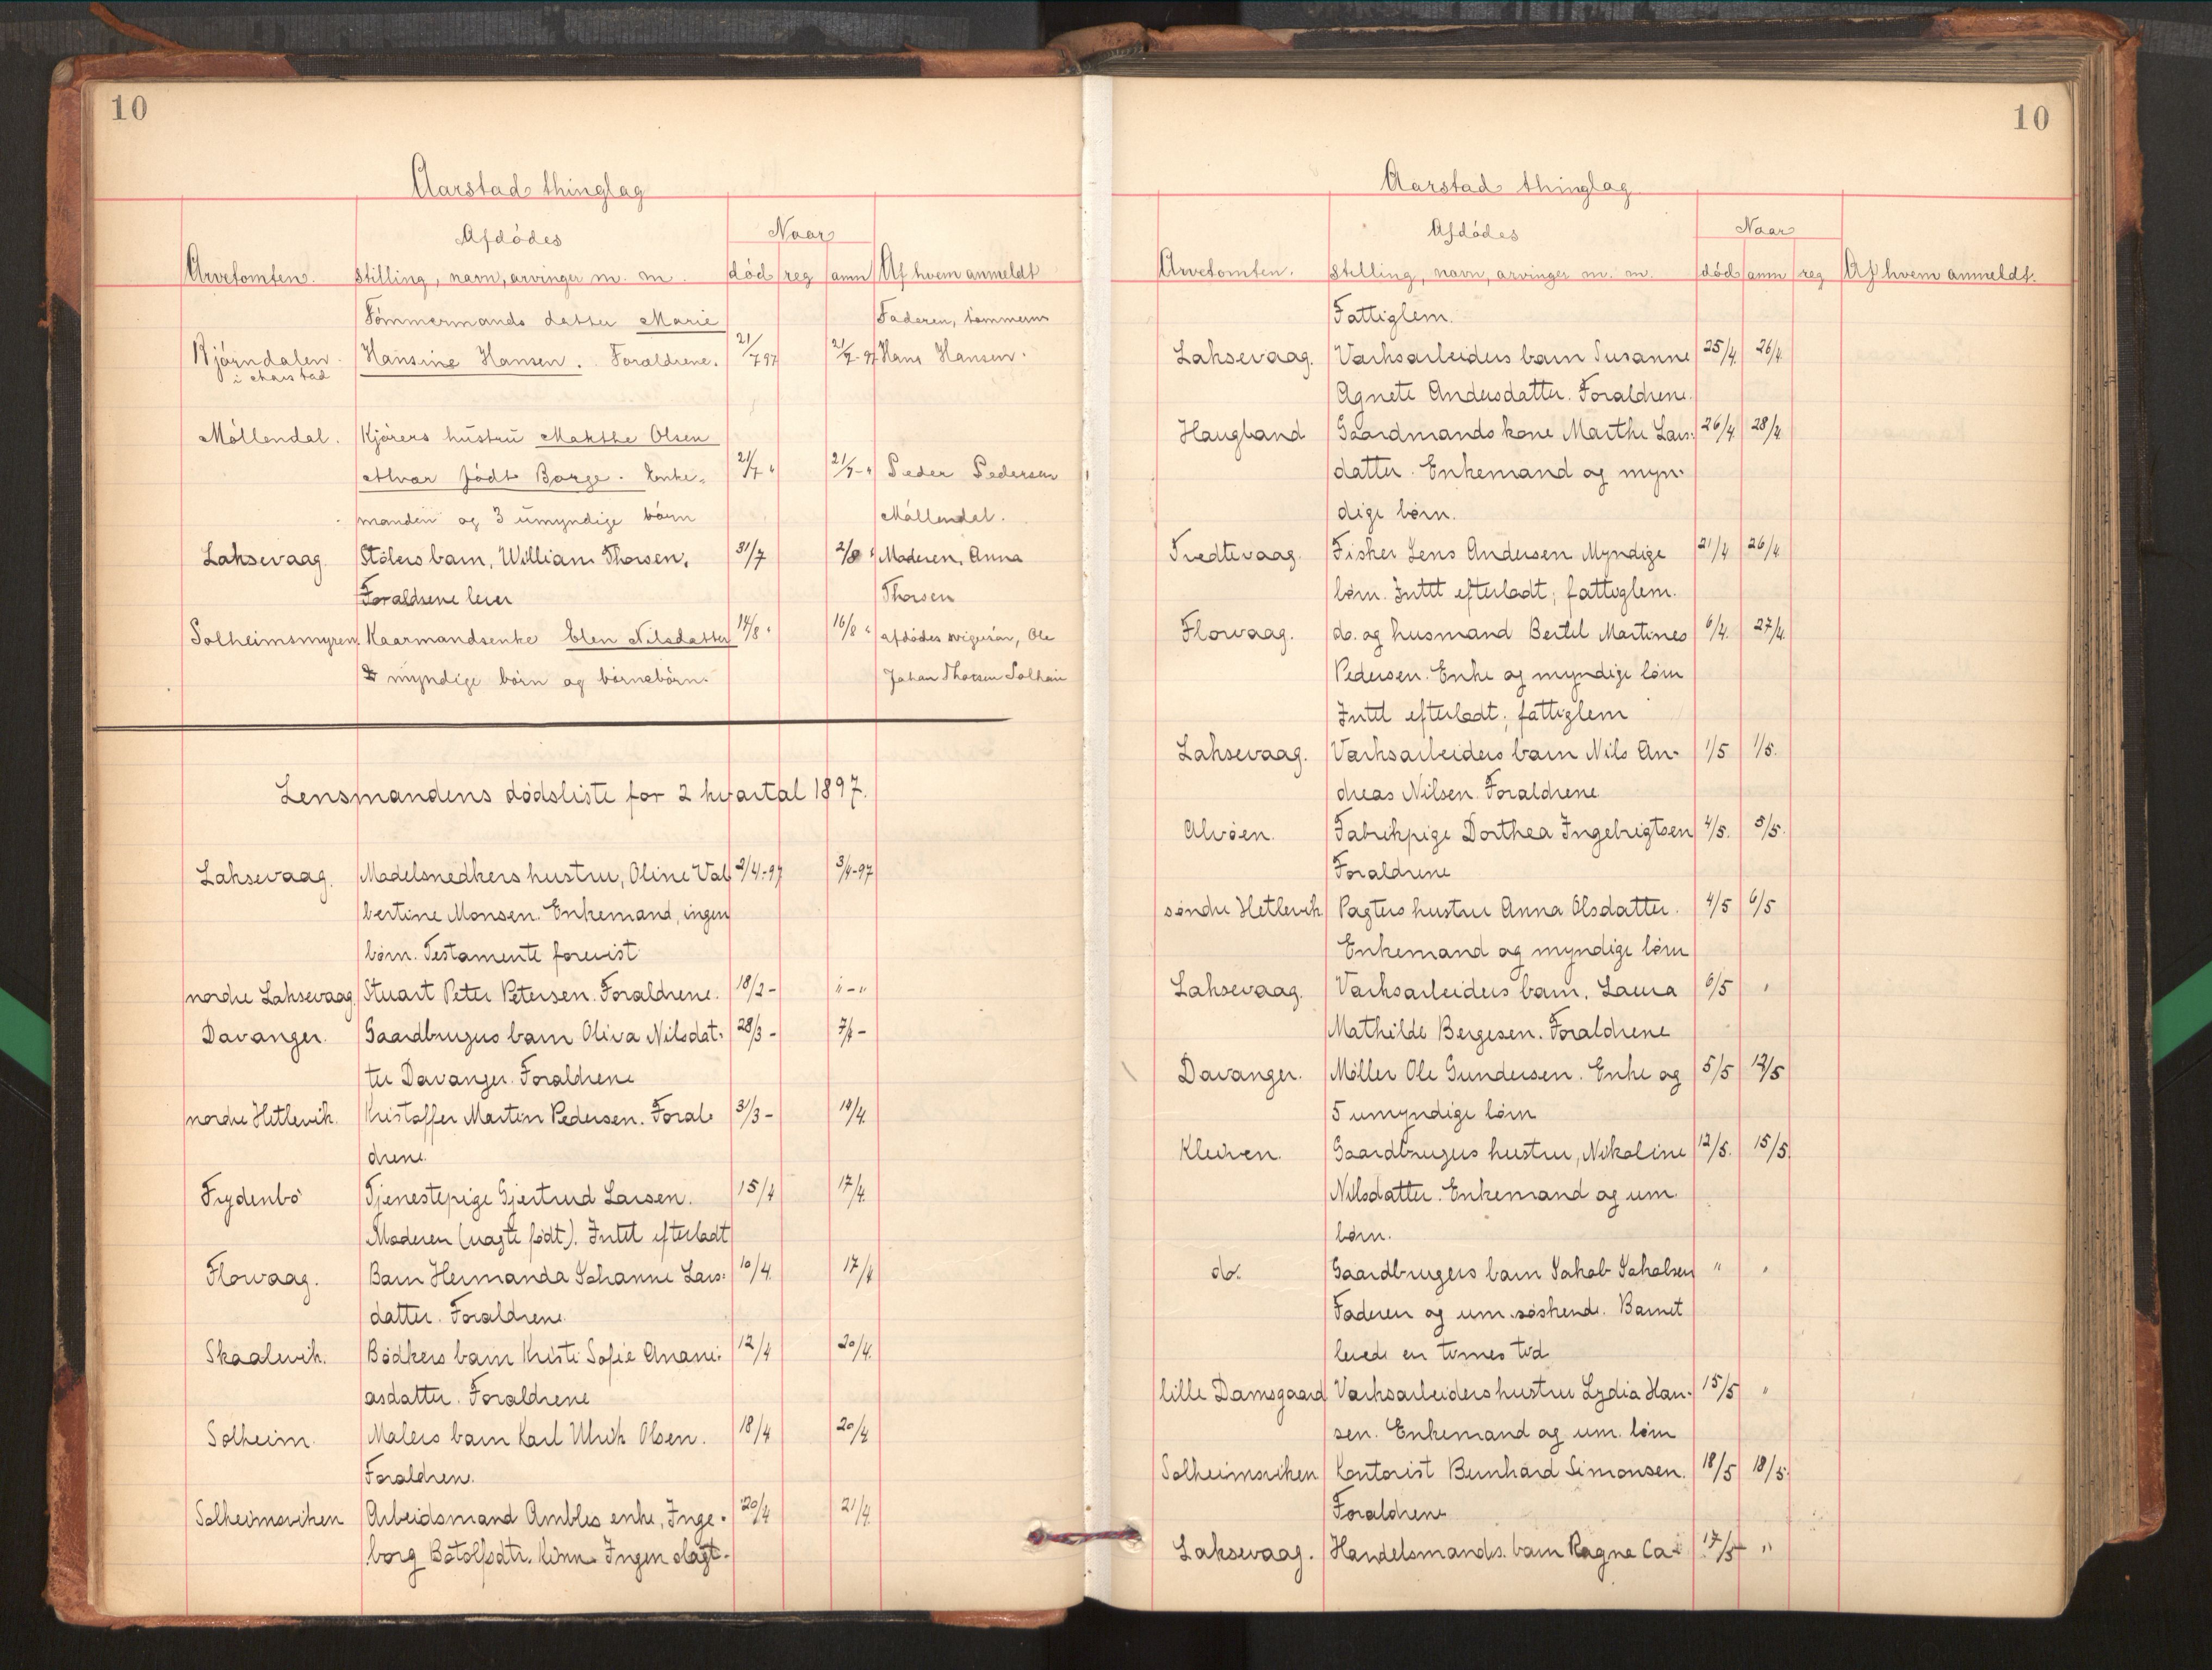 10
Aarstad thinglag
Afdödes
Naar
Arvetomten. stilling, navn, arvinger m. m. död reg anm Af hvem anmeldt
Tömmermands datter Marie Faderen, tömmerm
Bjørndalen. Hansine Hansen. Forældrene. 21/7 97 21/7-97 Hans Hansen.
i Aarstad
Möllendal. Kjörers hustru Marthe Olsen
født Borge. Enke- 21/7 " 21/7 - " Peder Pedersen
manden og 3 umyndige börn Möllendal.
Laksevaag Stölers barn, William Thorsen. 31/7 2/8 " Moderen, Anna
Forældrene lever Thorsen
Solheimsmyren. Kaarmandsenke Elen Nilsdatter 14/8 " 16/8 " afdödes svigersön, Ole
myndige börn og börnebörn. Johan Thorsen Solheim
Lensmandens dödsliste for 2 kvartal 1897.
Laksevaag. Modelsnedkers hustru, Oline Val 2/4-97 3/4-97
bertine Monsen. Enkemand, ingen
børn. Testamente forevist
nordre Laksevaag. Stuart Peter Petersen. Forældrene. 18/2 - " - "
Davanger. Gaardbrugers barn Oliva Nilsdat- 28/3 - 7/4 -
ter Davanger. Forældrene
nordre Hetlevik. Kristoffer Martin Pedersen. Foræl- 31/3 - 14/4.
drene.
Frydenbö Tjenestepige Gjertrud Larsen. 15/4 17/4.
Moderen (uægte født). Intet efterladt
Florvaag. Barn Hermanda Johanne Lars- 10/4. 17/4
datter. Forældrene.
Skaalevik. Bödkers barn Kristi Sofie Anani- 12/4 20/4.
asdatter. Forældrene
Solheim. Malers barn Karl Ulrik Olsen. 18/4 20/4
Forældren.
Solheimsviken Arbeidsmand Ambles enke, Inge- 20/4 21/4.
borg Botolfsdtr. Ingen slægt-
10
Aarstad thinglag
Afdödes
Naar
Arvetomten. stilling, navn, arvinger m. m. död anm reg Af hvem anmeldt.
Fattiglem.
Laksevaag. Værksarbeiders barn Susanne 25/4. 26/4.
Agnete Andersdatter. Forældrene.
Haugland Gaardmands kone Marthe Lars- 26/4. 28/4
datter. Enkemand og myn-
dige børn.
Tredtevaag. Fisker Jens Andersen Myndige 21/4 26/4
børn. Intet efterladt; fattiglem.
Florvaag. do. og husmand Bertel Martines 6/4. 27/4.
Pedersen. Enke og myndige børn
Intet efterladt; fattiglem
Laksevaag. Værksarbeiders barn Nils An- 1/5 1/5.
dreas Nilsen. Forældrene
Alvöen. Fabrikpige Dorthea Ingebrigtsen 4/5. 5/5.
Forældrene
søndre Hetlevik Pagters hustru Anna Olsdatter. 4/5 6/5
Enkemand og myndige børn
Laksevaag. Værksarbeiders barn, Laura 6/5 "
Mathilde Bergesen. Forældrene
Davanger. Möller Ole Gundersen. Enke og 5/5 12/5
5 umyndige børn
Kleiven. Gaardbrugers hustru, Nikoline 12/5. 15/5.
Nilsdatter. Enkemand og um.
børn.
do. Gaardbrugers barn Jakob Jakobsen " "
Faderen og um. søskende. Barnet
levede en times tid
lille Damsgaard Værksarbeiders hustru Lydia Han- 15/5 "
sen. Enkemand og um. børn
Solheimsviken Kontorist Bernhard Simonsen. 18/5 18/5.
Forældrene
Laksevaag. Handelsmands barn Ragna Ca- 17/5 "